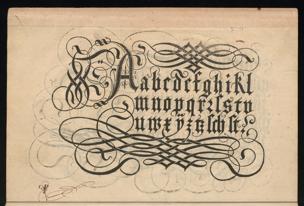 Aabcdefghikl
mnopqrzſstv
uwxyzßſchſt.